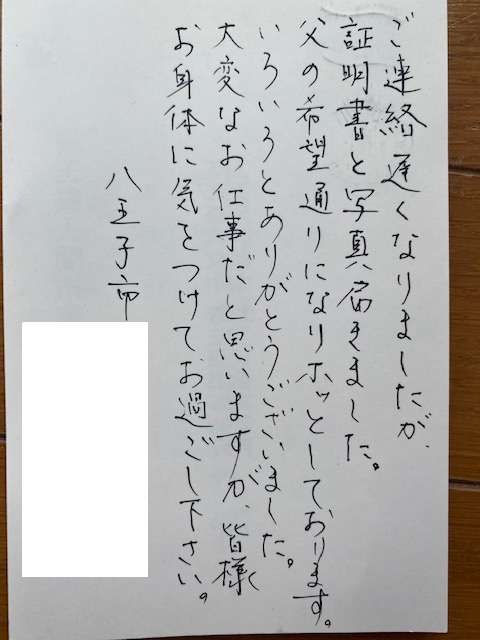 ご連絡遅くなりましたが、
証明書と写真届きました。
父の希望通りになりホッとしております。
いろいろとありがとうございました。
大変なお仕事だと思いますが、皆様
お身体に気をつけてお過ごし下さい。
八王子市